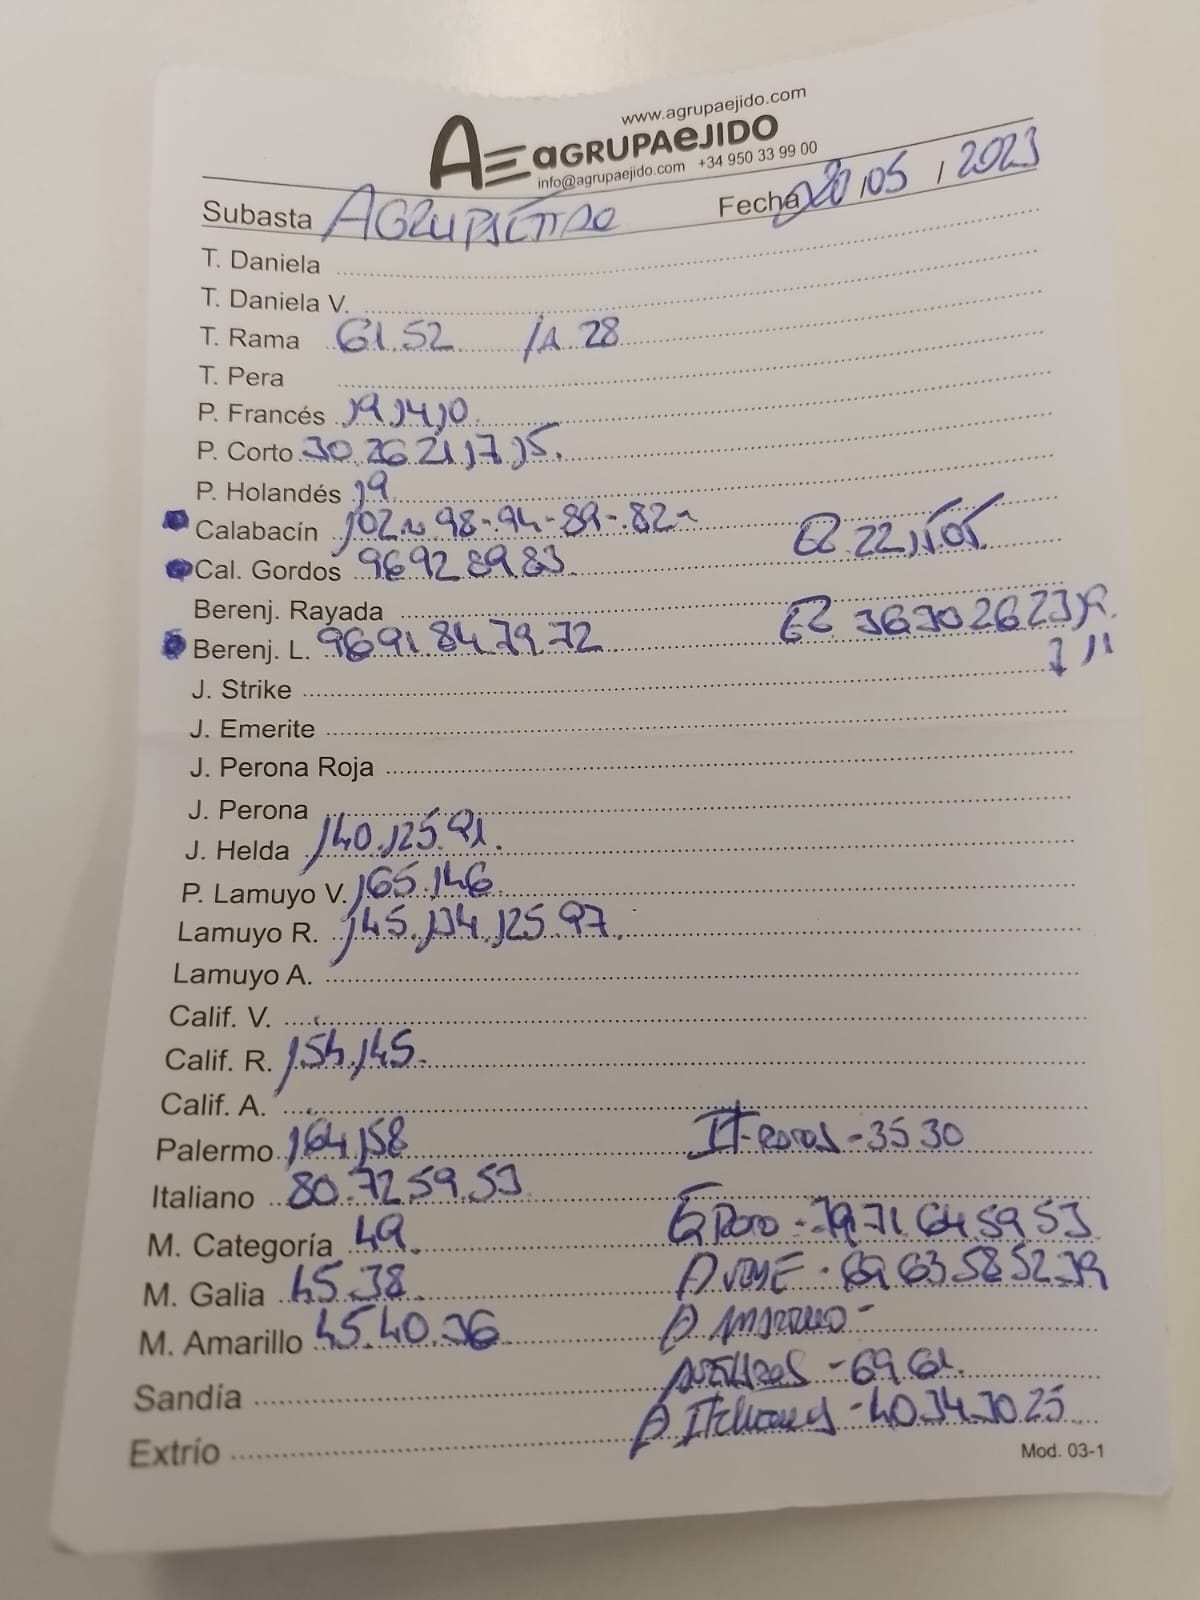 www.agrupaejido.com
AE aGRUPAeJIDO
info@agrupaejido.com +34 950 33 99 00
Subasta AGRUPAEJIDO Fecha 20/05/2023
T. Daniela
T. Daniela V.
T. Rama 61.52 /A 28
T. Pera
P. Francés 19.14.10.
P. Corto 30.26.21.17.15.
P. Holandés 19
Calabacín 102 98-94-89-82 22.15.05
Cal. Gordos 96 92 89 83
Berenj. Rayada
Berenj. L. 96 91 84 79 72 36 30 26 23 19.
11
J. Strike
J. Emerite
J. Perona Roja
J. Perona
J. Helda 140.125.91.
P. Lamuyo V. 165.146
Lamuyo R. 145.134.125.97.
Lamuyo A.
Calif. V.
Calif. R. 154.145.
Calif. A.
Palermo 164.158 IT-ROJOS - 35 30
Italiano 80.72.59.53
M. Categoría 49. G Doro - 79.71 64 59 53
M. Galia 45.38 A VERDE - 69 63 58 52 39
M. Amarillo 45.40.36 A AMARILLO -
Sandía ASURCADOS - 69.61.
Extrío A ITALIANOS - 40.34.30.25
Mod. 03-1